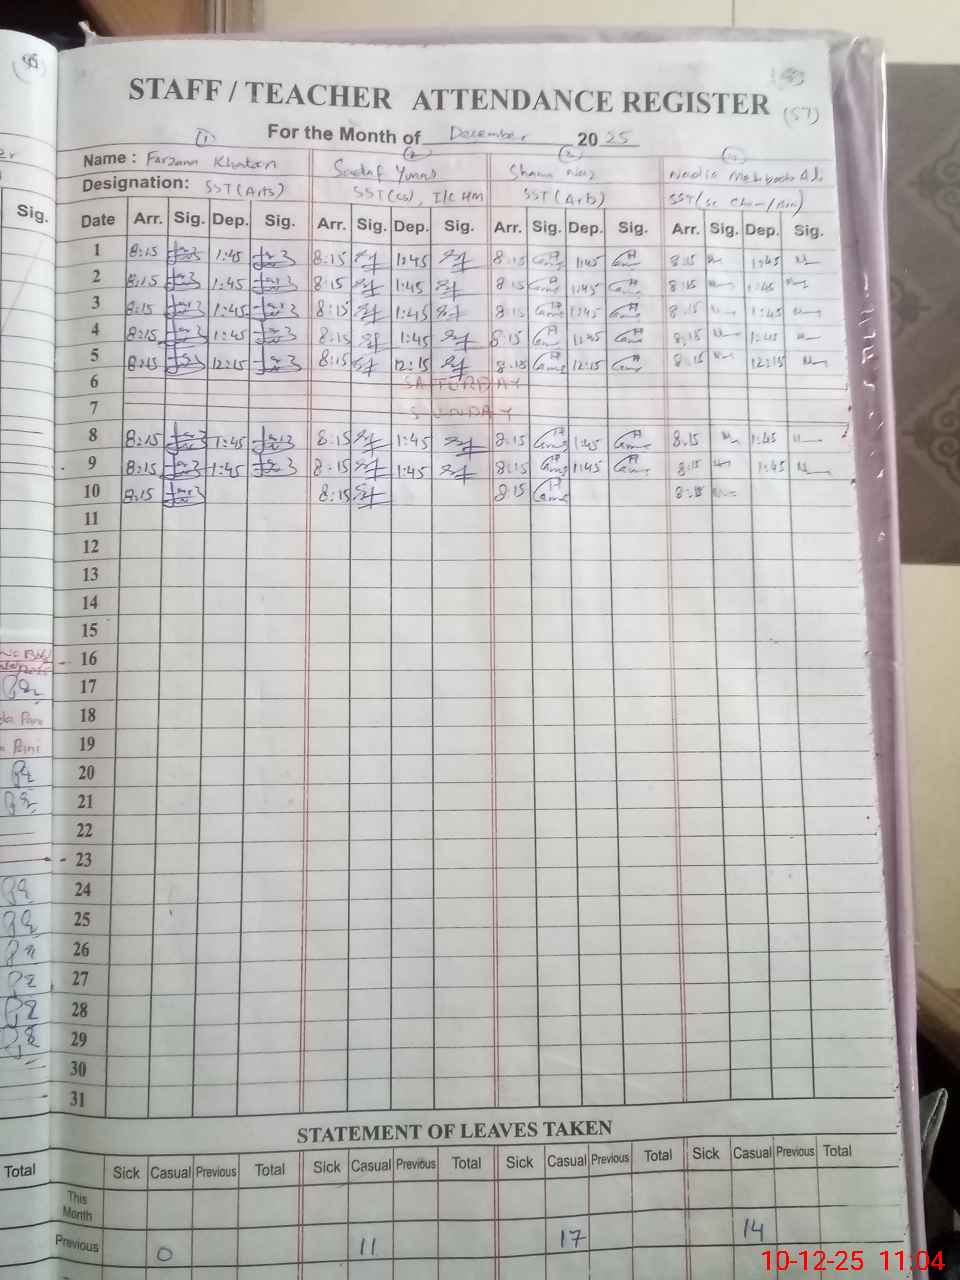 STAFF / TEACHER ATTENDANCE REGISTER
(57)
For the Month of December 2025
(1) (2) (3) (4)
Name : Farzana Khatoon Sadaf Yunus Shama Naz Nadia
Designation: SST (Arts) SST (cs), I/C HM SST (Arb) SST (Sc Chem/Bio)
Sig. Date Arr. Sig. Dep. Sig. Arr. Sig. Dep. Sig. Arr. Sig. Dep. Sig. Arr. Sig. Dep. Sig.
1 8:15 1:45 8:15 1:45 8:15 1:45 8:15 1:45
2 8:15 1:45 8:15 1:45 8:15 1:45 8:15 1:45
3 8:15 1:45 8:15 1:45 8:15 1:45 8:15 1:45
4 8:15 1:45 8:15 1:45 8:15 1:45 8:15 1:45
5 8:15 12:15 8:15 12:15 8:15 12:15 8:15 12:15
6 SATERDAY
7 SUNDAY
8 8:15 1:45 8:15 1:45 8:15 1:45 8:15 1:45
9 8:15 1:45 8:15 1:45 8:15 1:45 8:15 1:45
10 8:15 8:15 8:15 8:15
11
12
13
14
15
16
17
18
19
20
21
22
23
24
25
26
27
28
29
30
31
STATEMENT OF LEAVES TAKEN
Total Sick Casual Previous Total Sick Casual Previous Total Sick Casual Previous Total Sick Casual Previous Total
This Month
Previous 0 11 17 14
10-12-25 11:04